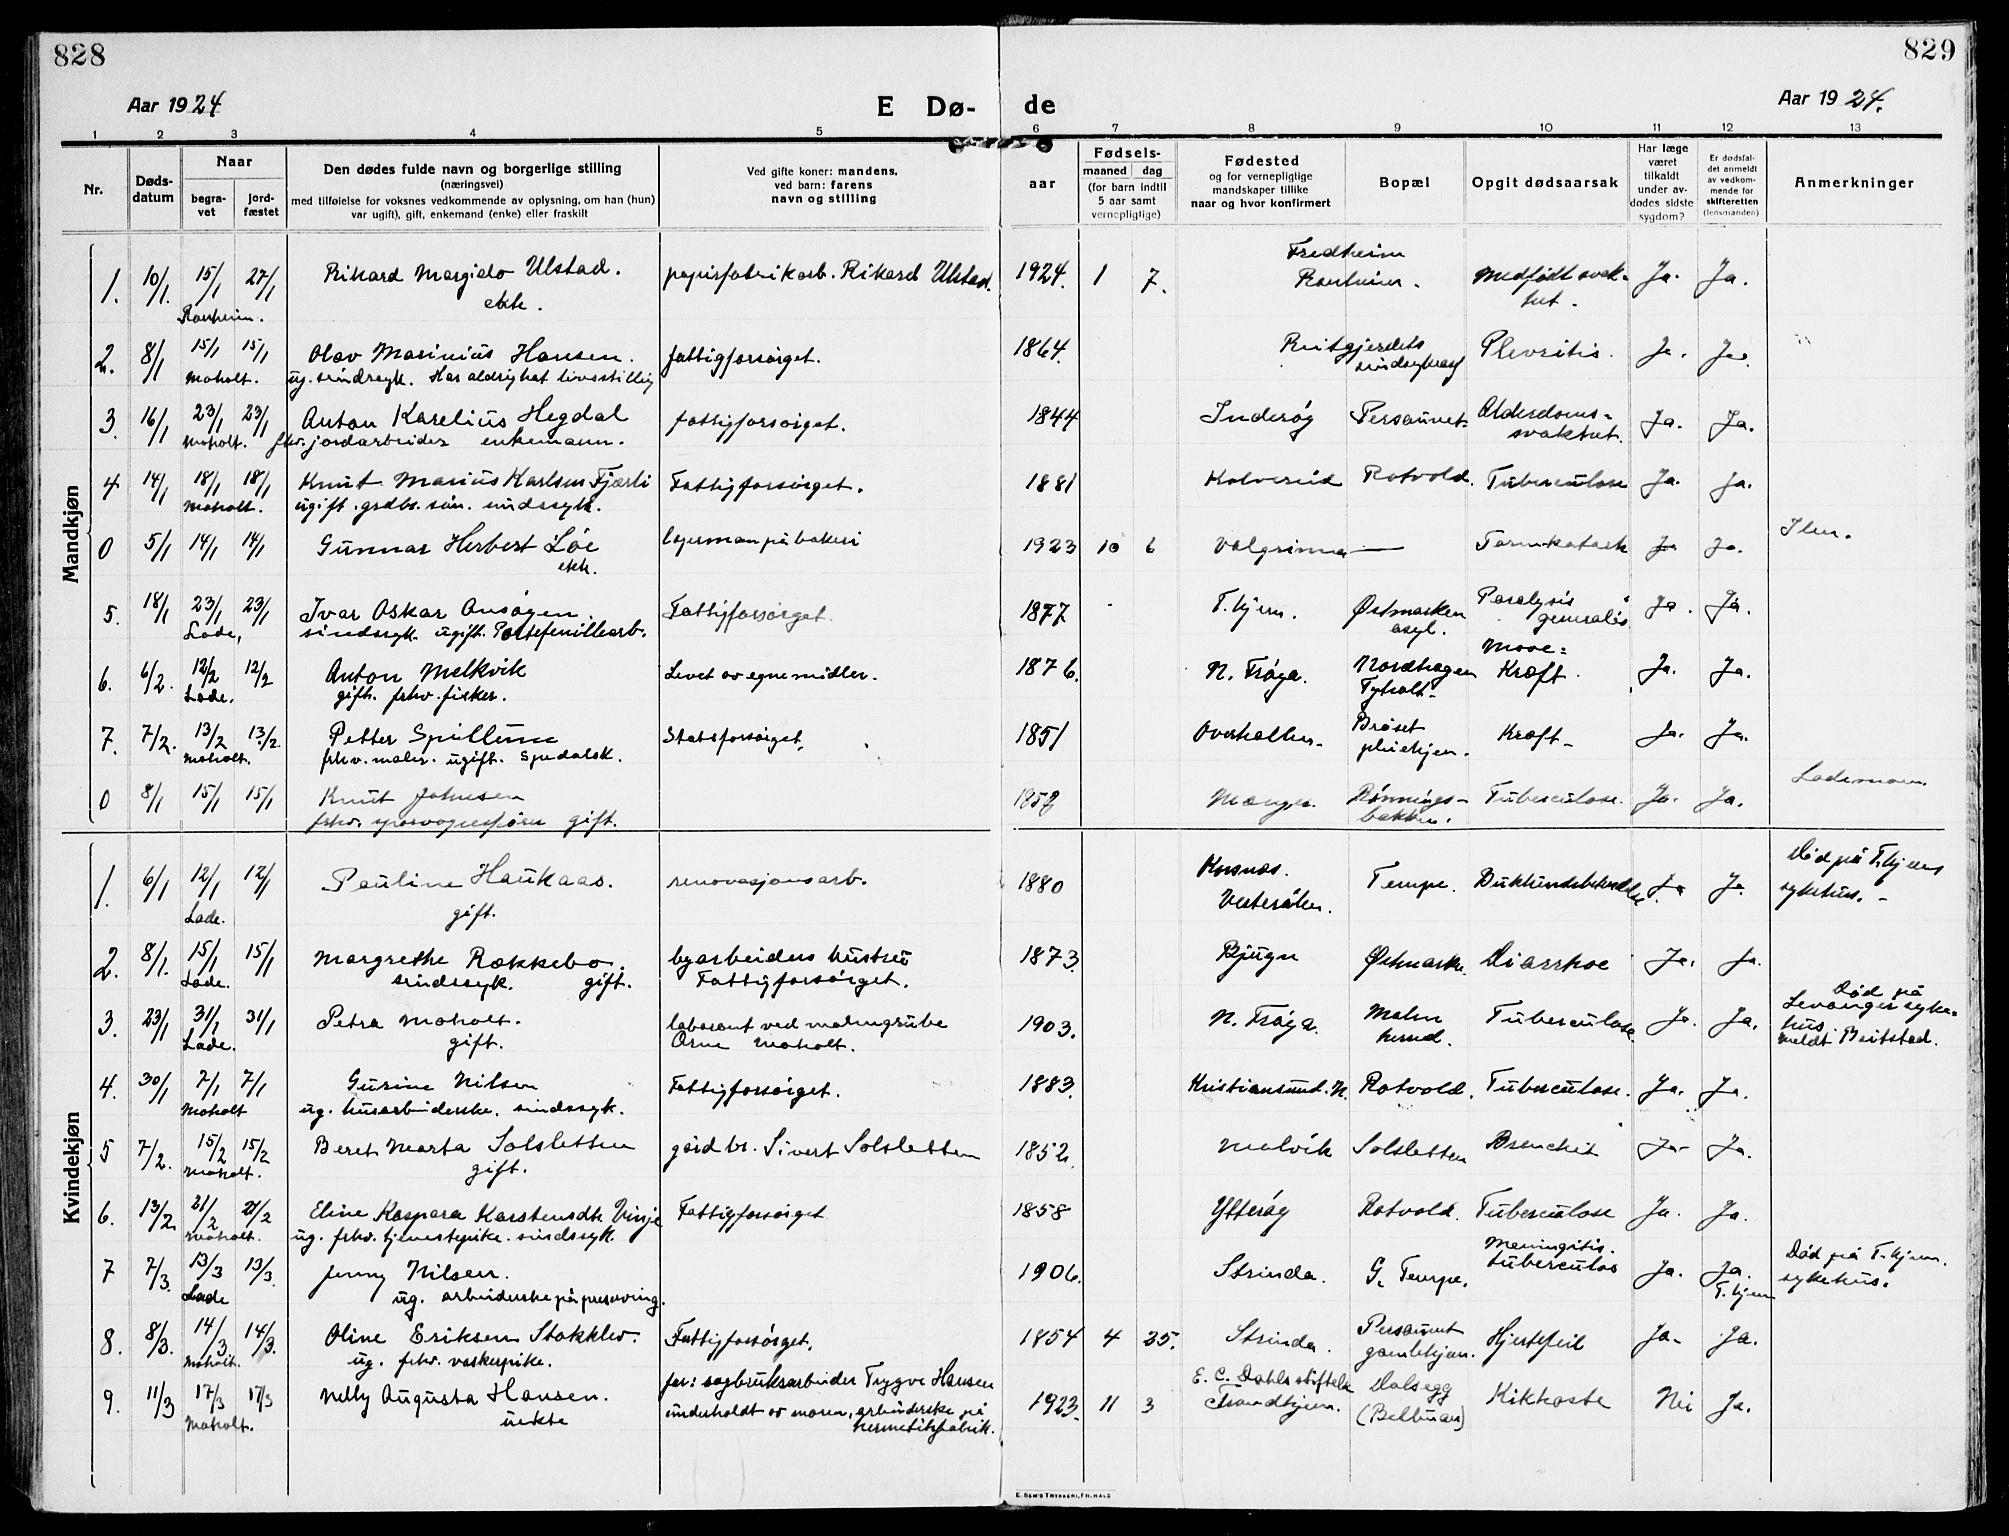 828
829
Aar 1924
E Dø-
de
Aar 1924.
1 2 3 4 5 6 7 8 9 10 11 12 13
Nr.
Døds-
datum
Naar
begra-
vet
jord-
fæstet
Den dødes fulde navn og borgerlige stilling
(næringsvei)
med tilføielse for voksnes vedkommende av oplysning, om han (hun)
var ugift), gift, enkemand (enke) eller fraskilt
Ved gifte koner: mandens,
ved barn: farens
navn og stilling
aar
Fødsels-
maaned dag
(for barn indtil
5 aar samt
vernepligtige)
Fødested
og for vernepligtige
mandskaper tillike
naar og hvor konfirmert
Bopæl
Opgit dødsaarsak
Har læge
været
tilkaldt
under av-
dødes sidste
sygdom?
Er dødsfal-
det anmeldt
av vedkom-
mende for
skifteretten
(lensmanden)
Anmerkninger
Mandkjøn
1. 10/1. 15/1 27/1 Rikard Margido Ulstad. papirfabrikarb. Rikard Ulstad. 1924. 1 7. Fredheim Medfødt svak- Ja. Ja.
Ranheim. ekte. Ranheim. het.
2. 8/1 15/1 15/1 Olav Marinius Hansen. fattigforsørget. 1864. Reitgjerdets Plevritis. Ja. Ja.
Moholt. ug. sindssyk. Har aldri hat livsstilling sindssykeasyl
3. 16/1 23/1 23/1 Anton Karelius Hegdal fattigforsørget. 1844 Inderøy Persaunet. Alderdoms- Ja. Ja.
Moholt. fhv. jordarbeider enkemann. svakhet.
4 14/1 18/1 18/1 Knut Marius Karlsen Fjærli Fattigforsørget. 1881 Kolvereid Rotvold. Tuberculose Ja. Ja.
Moholt. ugift. grdbr. søn. sindssyk.
0 5/1 14/1 14/1 Gunnar Herbert Løe lagerman på bakeri 1923 10 6 Valgrinna — Tarmkatarh Ja Ja. Ilen.
ekt.
5. 18/1 23/1 23/1 Ivar Oskar Ansøgen. Fattigforsørget. 1877 T.hjem. Østmarken Paralysis Ja. Ja.
Lade, sindssyk. ugift. Portefeuillearb. asyl. generalis.
6. 6/2. 12/2 12/2 Anton Melkvik Levet av egne midler. 1876. N. Frøya. Nordhagen Mave= Ja. Ja.
Lade. gift. fhv. fisker. Tyholt- Kræft.
7. 7/2. 13/2 13/2 Petter Spillum Statsforsørget. 1851 Overhallen- Brøset Kræft- Ja. Ja.
Moholt. fhv. maler. ugift. Spedalsk. pleiehjem.
0 8/1 15/1 15/1 Knut Johnsen Manger. Rønnings- Tuberculose. Ja. Ja. Lademoen
fhv. sporvognsfører gift. bakken.
Kvindekjøn
1. 6/1 12/1 12/1 Pauline Haukaas. renovasjonsarb. 1880 Tempe. Ja Ja Død på T.hjems
Lade. gift. Vesterålen. sykehus. -
2. 8/1. 15/1 15/1 Margrethe Rækkebo. byarbeiders hustru 1873. Bjugn Østmarke. Diarrhoe Ja. Ja.
Lade. sindssyk. gift. Fattigforsørget.
3. 23/1 31/1 31/1 Petra Moholt. laborant ved malmgrube 1903. N. Frøya. Malm Tuberculose. Ja. Ja. Død på
Lade. gift. Arne Moholt. herred. Levanger syke-
hus.
meldt Beitstad.
4. 30/1 7/1 7/1 Gurine Nilsen Fattigforsørget. 1883. Kristiansund. N. Rotvold. Tuberculose. Ja. Ja.
Moholt ug. husarbeiderske. sindssyk.
5 7/2. 15/2 15/2 Beret Marta Solsletten gårdbr. Sivert Solsletten 1852. Malvik Solsletten Bronchit Ja- Ja.
Moholt. gift.
6. 13/2. 21/2 21/2 Eline Kaspara Karstensdtr Vinje Fattigforsørget 1858 Ytterøy Rotvold. Tuberculose Ja. Ja.
Moholt. ug. fhv. tjenestepike. sindssyk.
7 7/3. 13/3 13/3. Jenny Nilsen. 1906. Strinda. G. Tempe. Meningitis. Ja. Ja. Død på T.hjem.
Lade ug. arbeiderske på preserving. tuberculos T.hjem sykehus.
8. 8/3. 14/3 14/3. Oline Eriksen Stokklev. Fattigforsørget. 1854 4 25. Strinda. Persaunet Hjertefeil Ja- Ja.
Moholt. ug. fhv. vaskerpike. gamlehjem.
9. 11/3 17/3 17/3 Nelly Augusta Hansen. far: sagbruksarbeider Trygve Hansen 1923. 11 3 E. C. Dahls stiftelse Dalsegg Kikhoste Nei Ja.
Moholt. uekte underholdt av moren, arbeiderske på Trondhjem. (Belbuan)
hermetikfabrik.
E. SEM'S TRYKKERI, FR.HALD